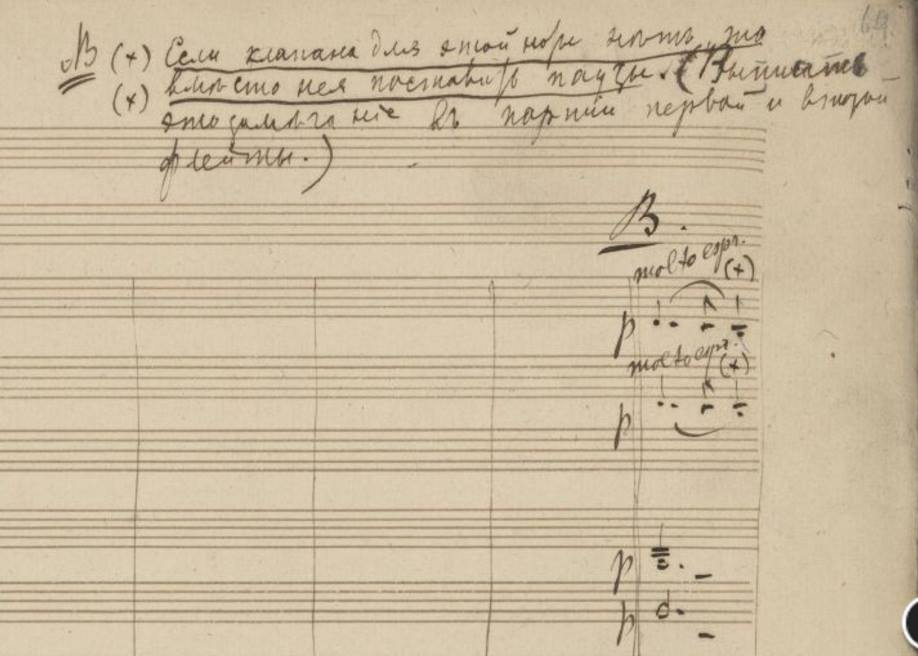 NB (×) Если клапана для этой ноты нѣтъ, то
(×) вмѣсто нея поставить паузы. (Выписать
это замѣчаніе въ партіи первой и второй
флейты.)
B.
molto espr.
(×)
p
molto espr.
(×)
p
p
p